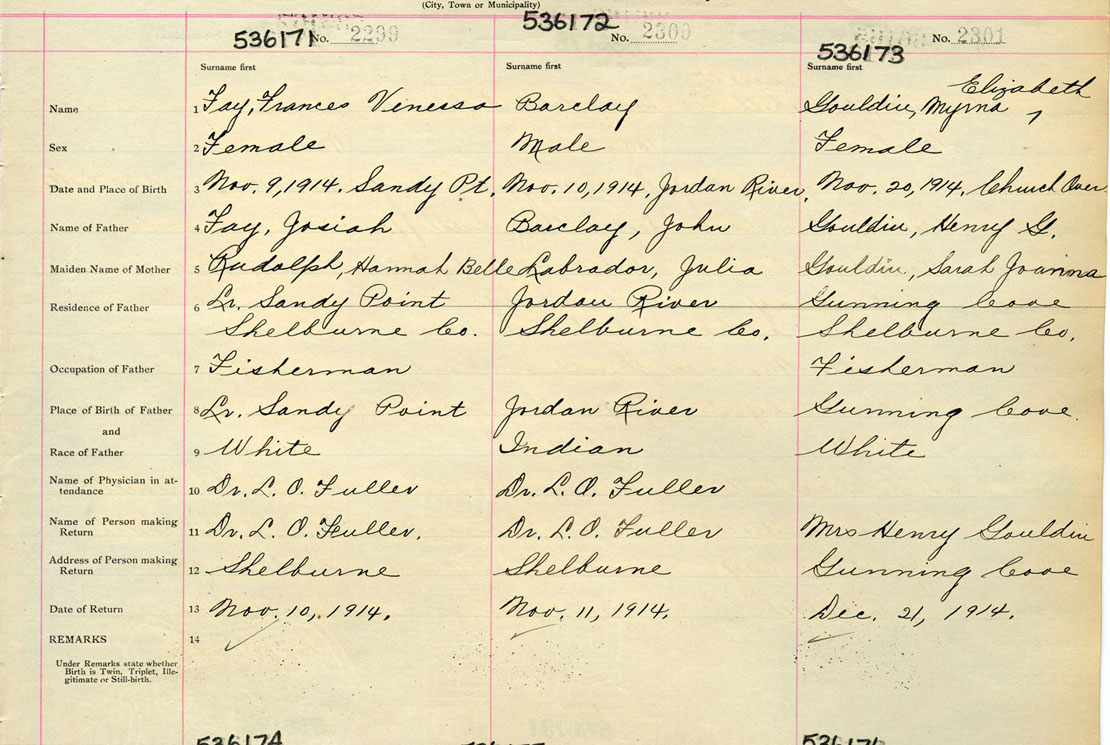 (City, Town or Municipality)
536171 No. 2299 536172 No. 2300 536173 No. 2301
Surname first Surname first Surname first
Name 1 Fay, Frances Venessa Barclay Gouldin, Myrna Elizabeth
Sex 2 Female Male Female
Date and Place of Birth 3 Nov. 9, 1914. Sandy Pt. Nov. 10, 1914, Jordan River. Nov. 20, 1914, Church Over
Name of Father 4 Fay, Josiah Barclay, John Gouldin, Henry G.
Maiden Name of Mother 5 Rudolph, Hannah Belle Labrador, Julia Gouldin, Sarah Joanna
Residence of Father 6 Lr. Sandy Point Jordan River Gunning Cove
Shelburne Co. Shelburne Co. Shelburne Co.
Occupation of Father 7 Fisherman Fisherman
Place of Birth of Father 8 Lr. Sandy Point Jordan River Gunning Cove.
and
Race of Father 9 White Indian White
Name of Physician in at-
tendance 10 Dr. L. O. Fuller Dr. L. O. Fuller
Name of Person making
Return 11 Dr. L. O. Fuller. Dr. L. O. Fuller Mrs Henry Gouldin
Address of Person making
Return 12 Shelburne Shelburne Gunning Cove
Date of Return 13 Nov. 10, 1914. Nov. 11, 1914. Dec. 21, 1914.
REMARKS 14
Under Remarks state whether
Birth is Twin, Triplet, Ille-
gitimate or Still-birth.
536174